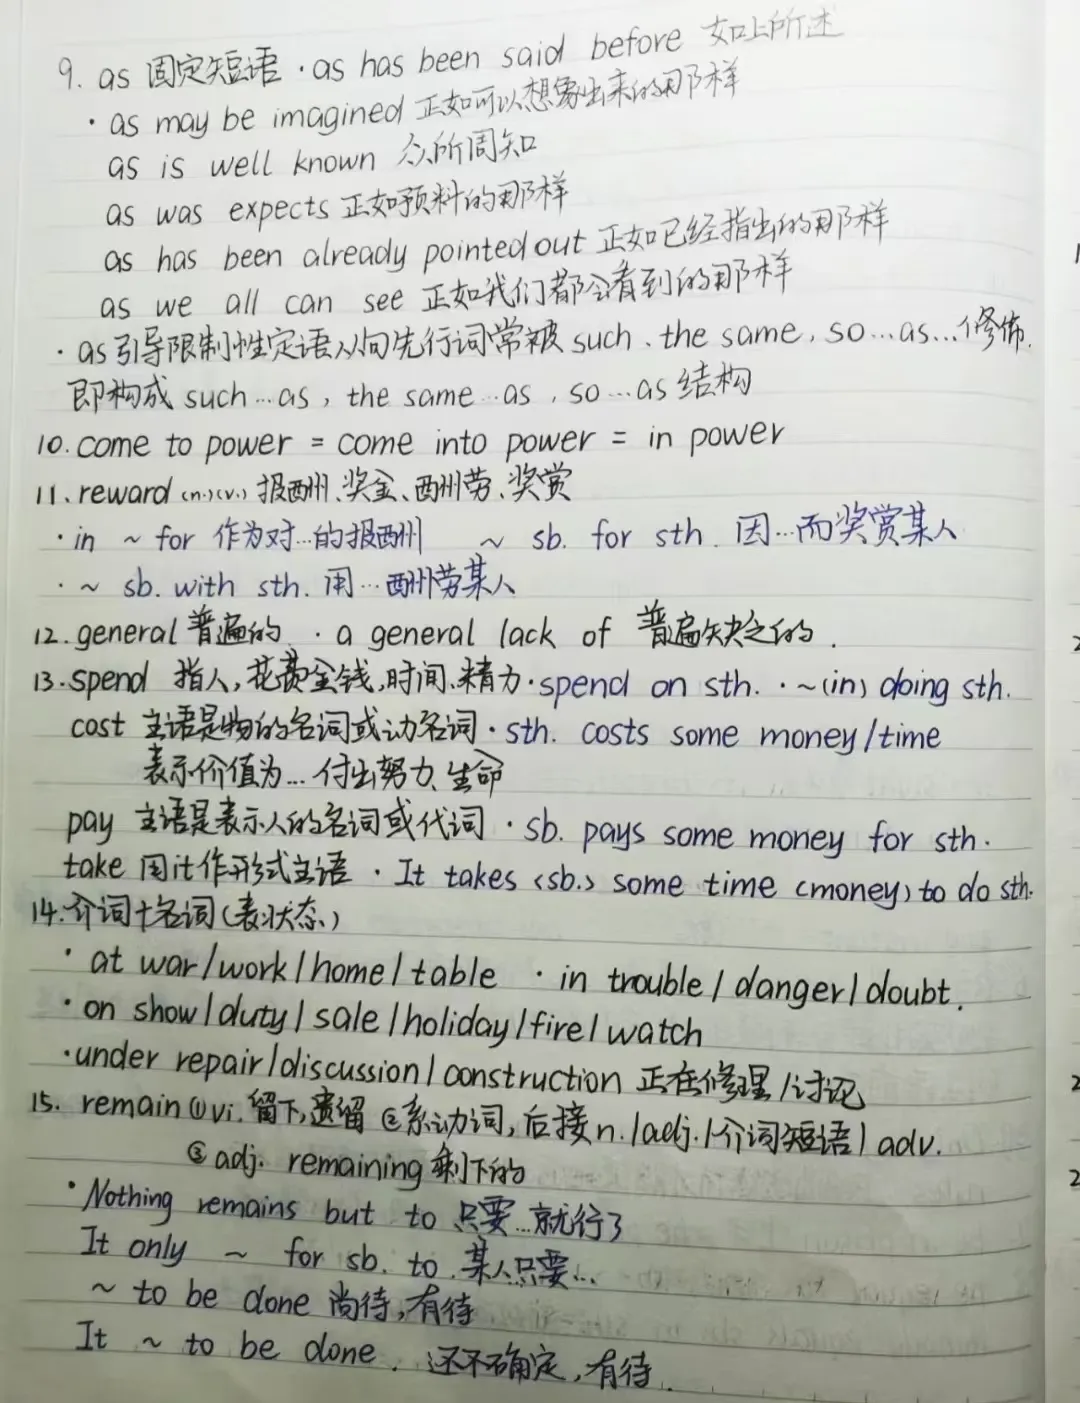 9. as 固定短语 · as has been said before 如上所述
· as may be imagined 正如可以想象出来的那样
as is well known 众所周知
as was expects 正如预料的那样
as has been already pointed out 正如已经指出的那样
as we all can see 正如我们都会看到的那样
· as引导限制性定语从句先行词常被 such、the same, so...as...修饰.
即构成 such...as, the same...as, so...as 结构
10. come to power = come into power = in power
11. reward (n.)(v.) 报酬、奖金、酬劳、奖赏
· in ~ for 作为对...的报酬 ~ sb. for sth. 因...而奖赏某人
· ~ sb. with sth. 用...酬劳某人
12. general 普遍的 · a general lack of 普遍缺乏的.
13. spend 指人,花费金钱,时间、精力 · spend on sth. · ~(in) doing sth.
cost 主语是物的名词或动名词 · sth. costs some money/time
表示价值为... 付出努力、生命
pay 主语是表示人的名词或代词 · sb. pays some money for sth.
take 用it作形式主语 · It takes (sb.) some time (money) to do sth.
14. 介词+名词(表状态)
· at war/work/home/table · in trouble/danger/doubt.
· on show/duty/sale/holiday/fire/watch
· under repair/discussion/construction 正在修理/讨论
15. remain ①vi. 留下,遗留 ②系动词,后接n./adj./介词短语/adv.
③adj. remaining 剩下的
· Nothing remains but to 只要...就行了
It only ~ for sb. to. 某人只要...
~ to be done 尚待,有待
It ~ to be done. 还不确定,有待.